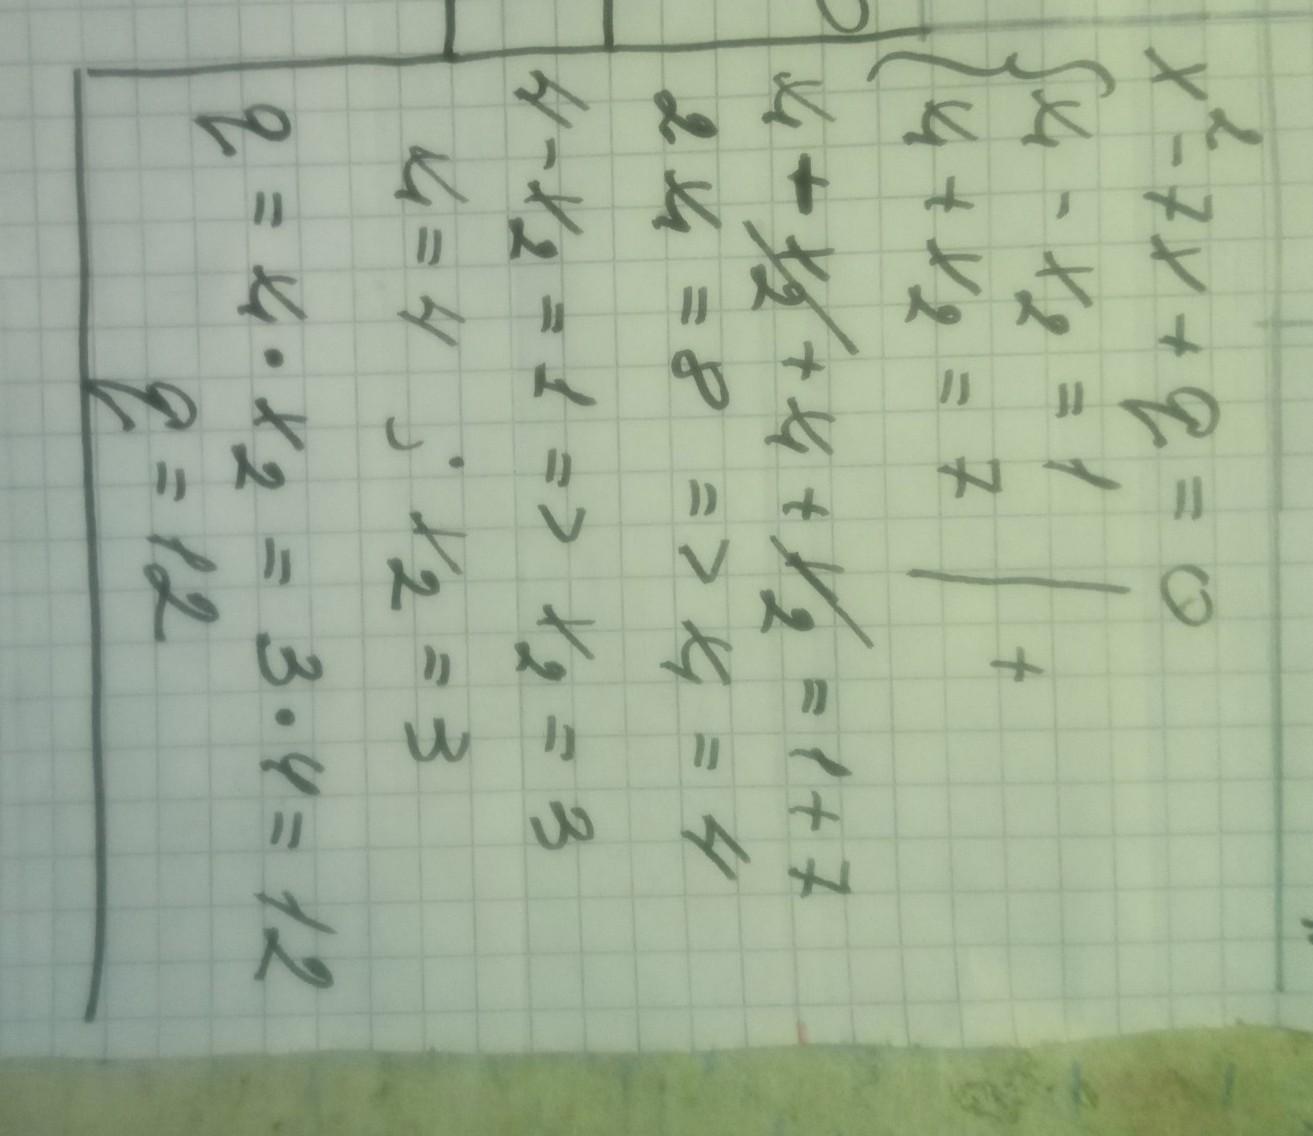 x² - 7x + q = 0
{ x₁ - x₂ = 1
{ x₁ + x₂ = 7 | +
x₁ - x₂ + x₁ + x₂ = 1 + 7
2x₁ = 8 => x₁ = 4
4 - x₂ = 1 => x₂ = 3
x₁ = 4 ; x₂ = 3
q = x₁ · x₂ = 3 · 4 = 12
q = 12